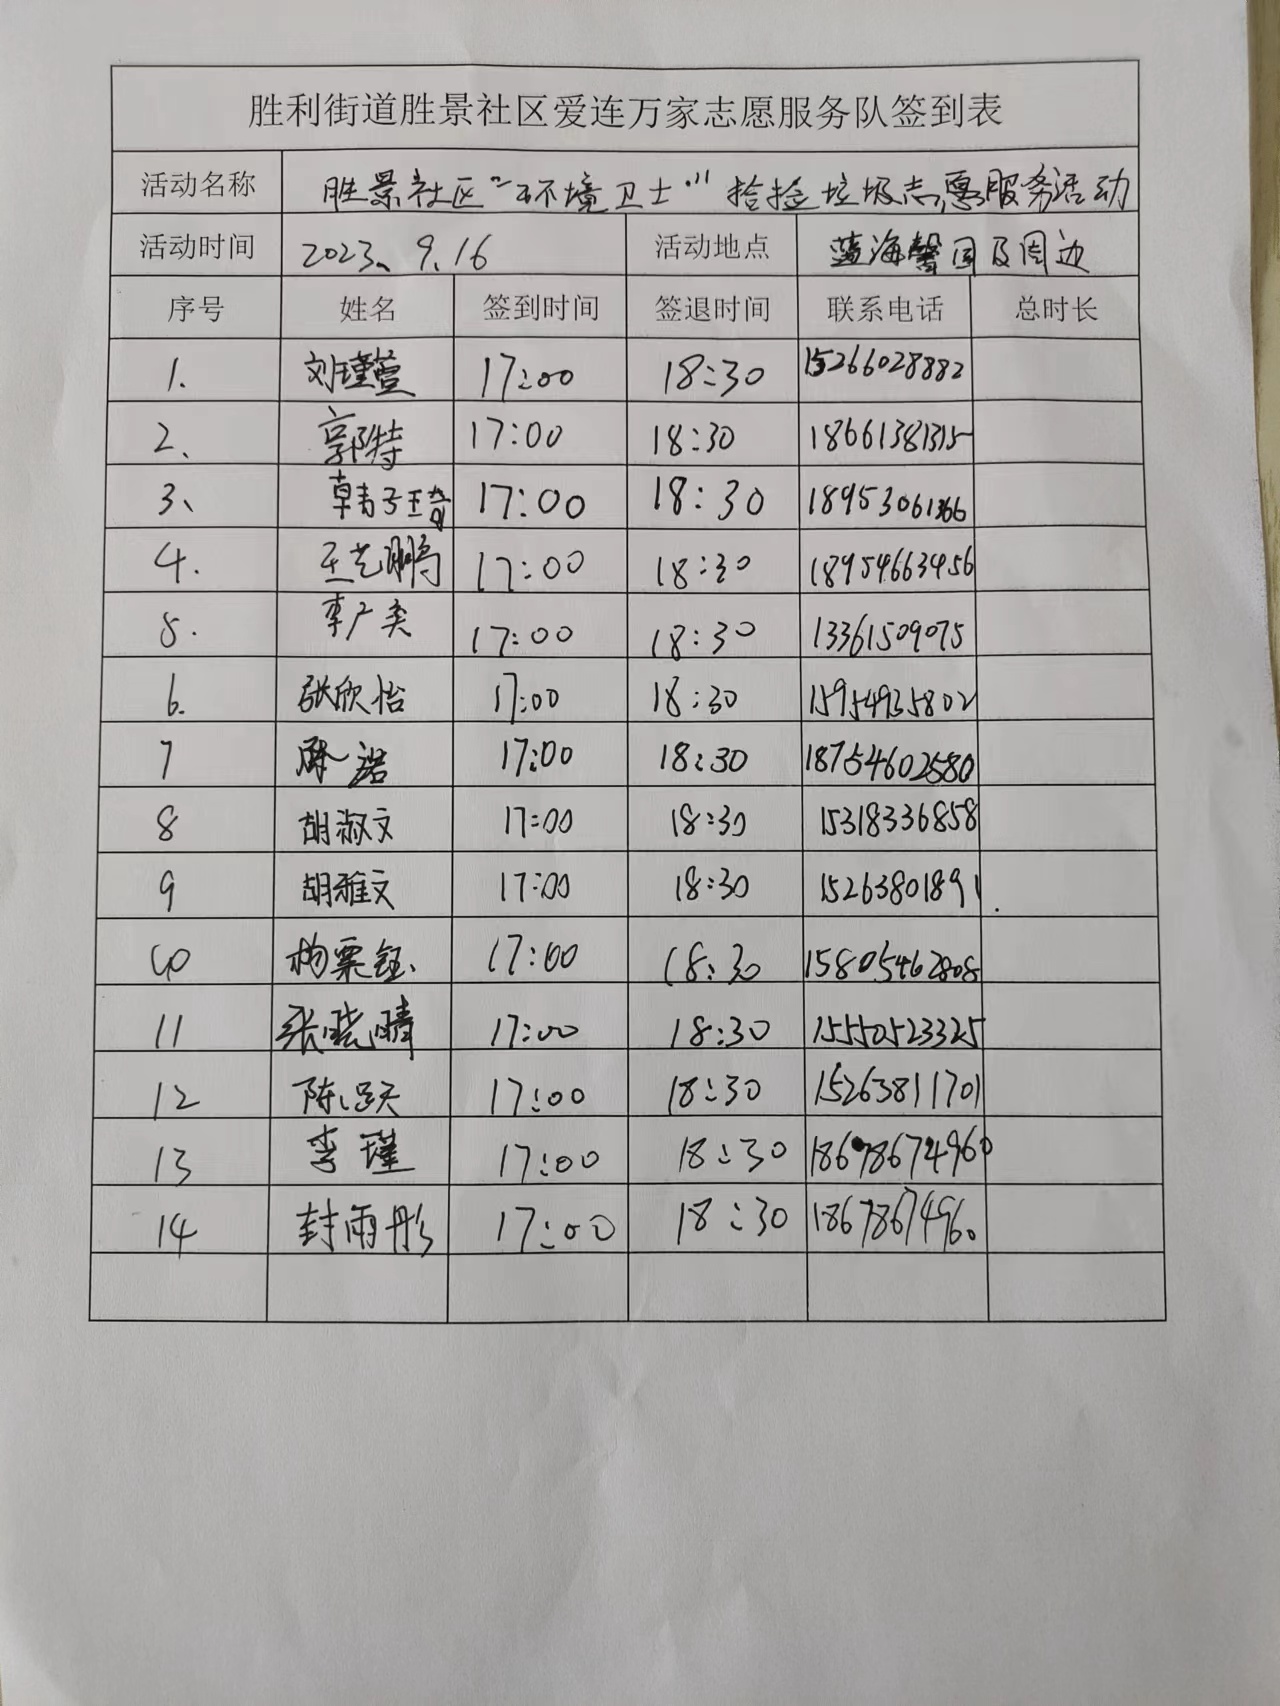 胜利街道胜景社区爱连万家志愿服务队签到表
活动名称 胜景社区“环境卫士”捡捡垃圾志愿服务活动
活动时间 2023.9.16 活动地点 蓝海馨园及周边
序号 姓名 签到时间 签退时间 联系电话 总时长
1. 刘瑾萱 17:00 18:30 15266028882
2、 郭特 17:00 18:30 18661381315
3、 韩子琦 17:00 18:30 18953061366
4. 王艺鹏 17:00 18:30 18954663456
5. 李广奕 17:00 18:30 13361509075
6. 张欣怡 17:00 18:30 15954935802
7 陈诺 17:00 18:30 18754602580
8 胡淑文 17:00 18:30 15318336858
9 胡雅文 17:00 18:30 15263801891
10 杨栗钰 17:00 18:30 15805462808
11 张晓晴 17:00 18:30 15550523325
12 陈跃 17:00 18:30 15263811701
13 李瑾 17:00 18:30 18678674960
14 封雨彤 17:00 18:30 18678674960